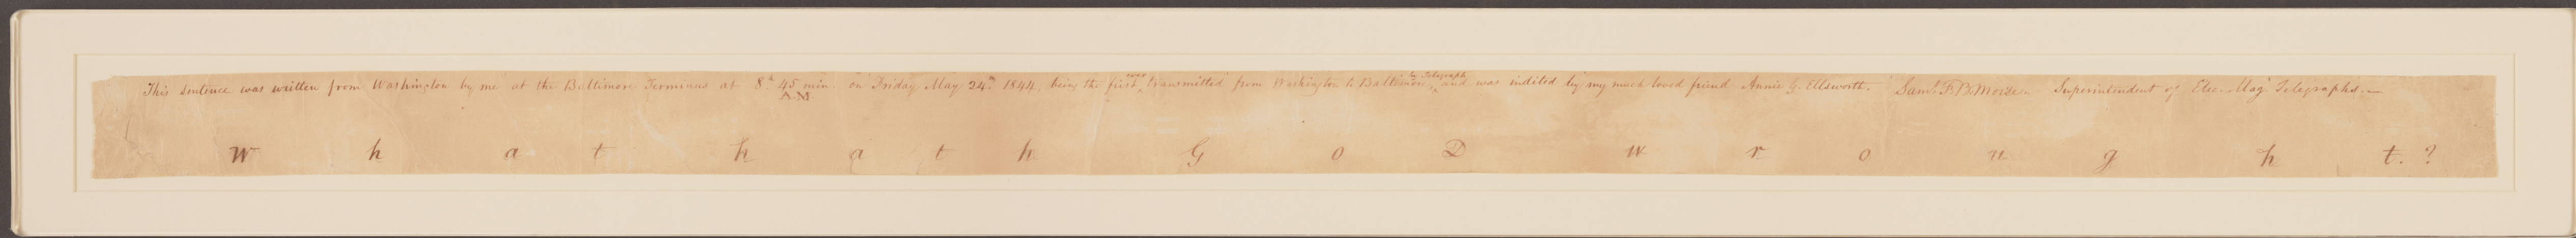 This sentence was written from Washington by me at the Baltimore Terminus at 8h. 45 min. A.M. on Friday May 24th. 1844, being the first ever transmitted from Washington to Baltimore, by Telegraph and was indited by my much loved friend Annie G. Ellsworth. Saml. F. B. Morse. Superintendent of Elec. Mag. Telegraphs.
W h a t h a t h G o D w r o u g h t. ?